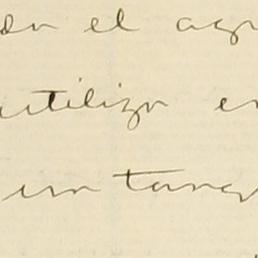 da el ag
utiliza en
un tanq